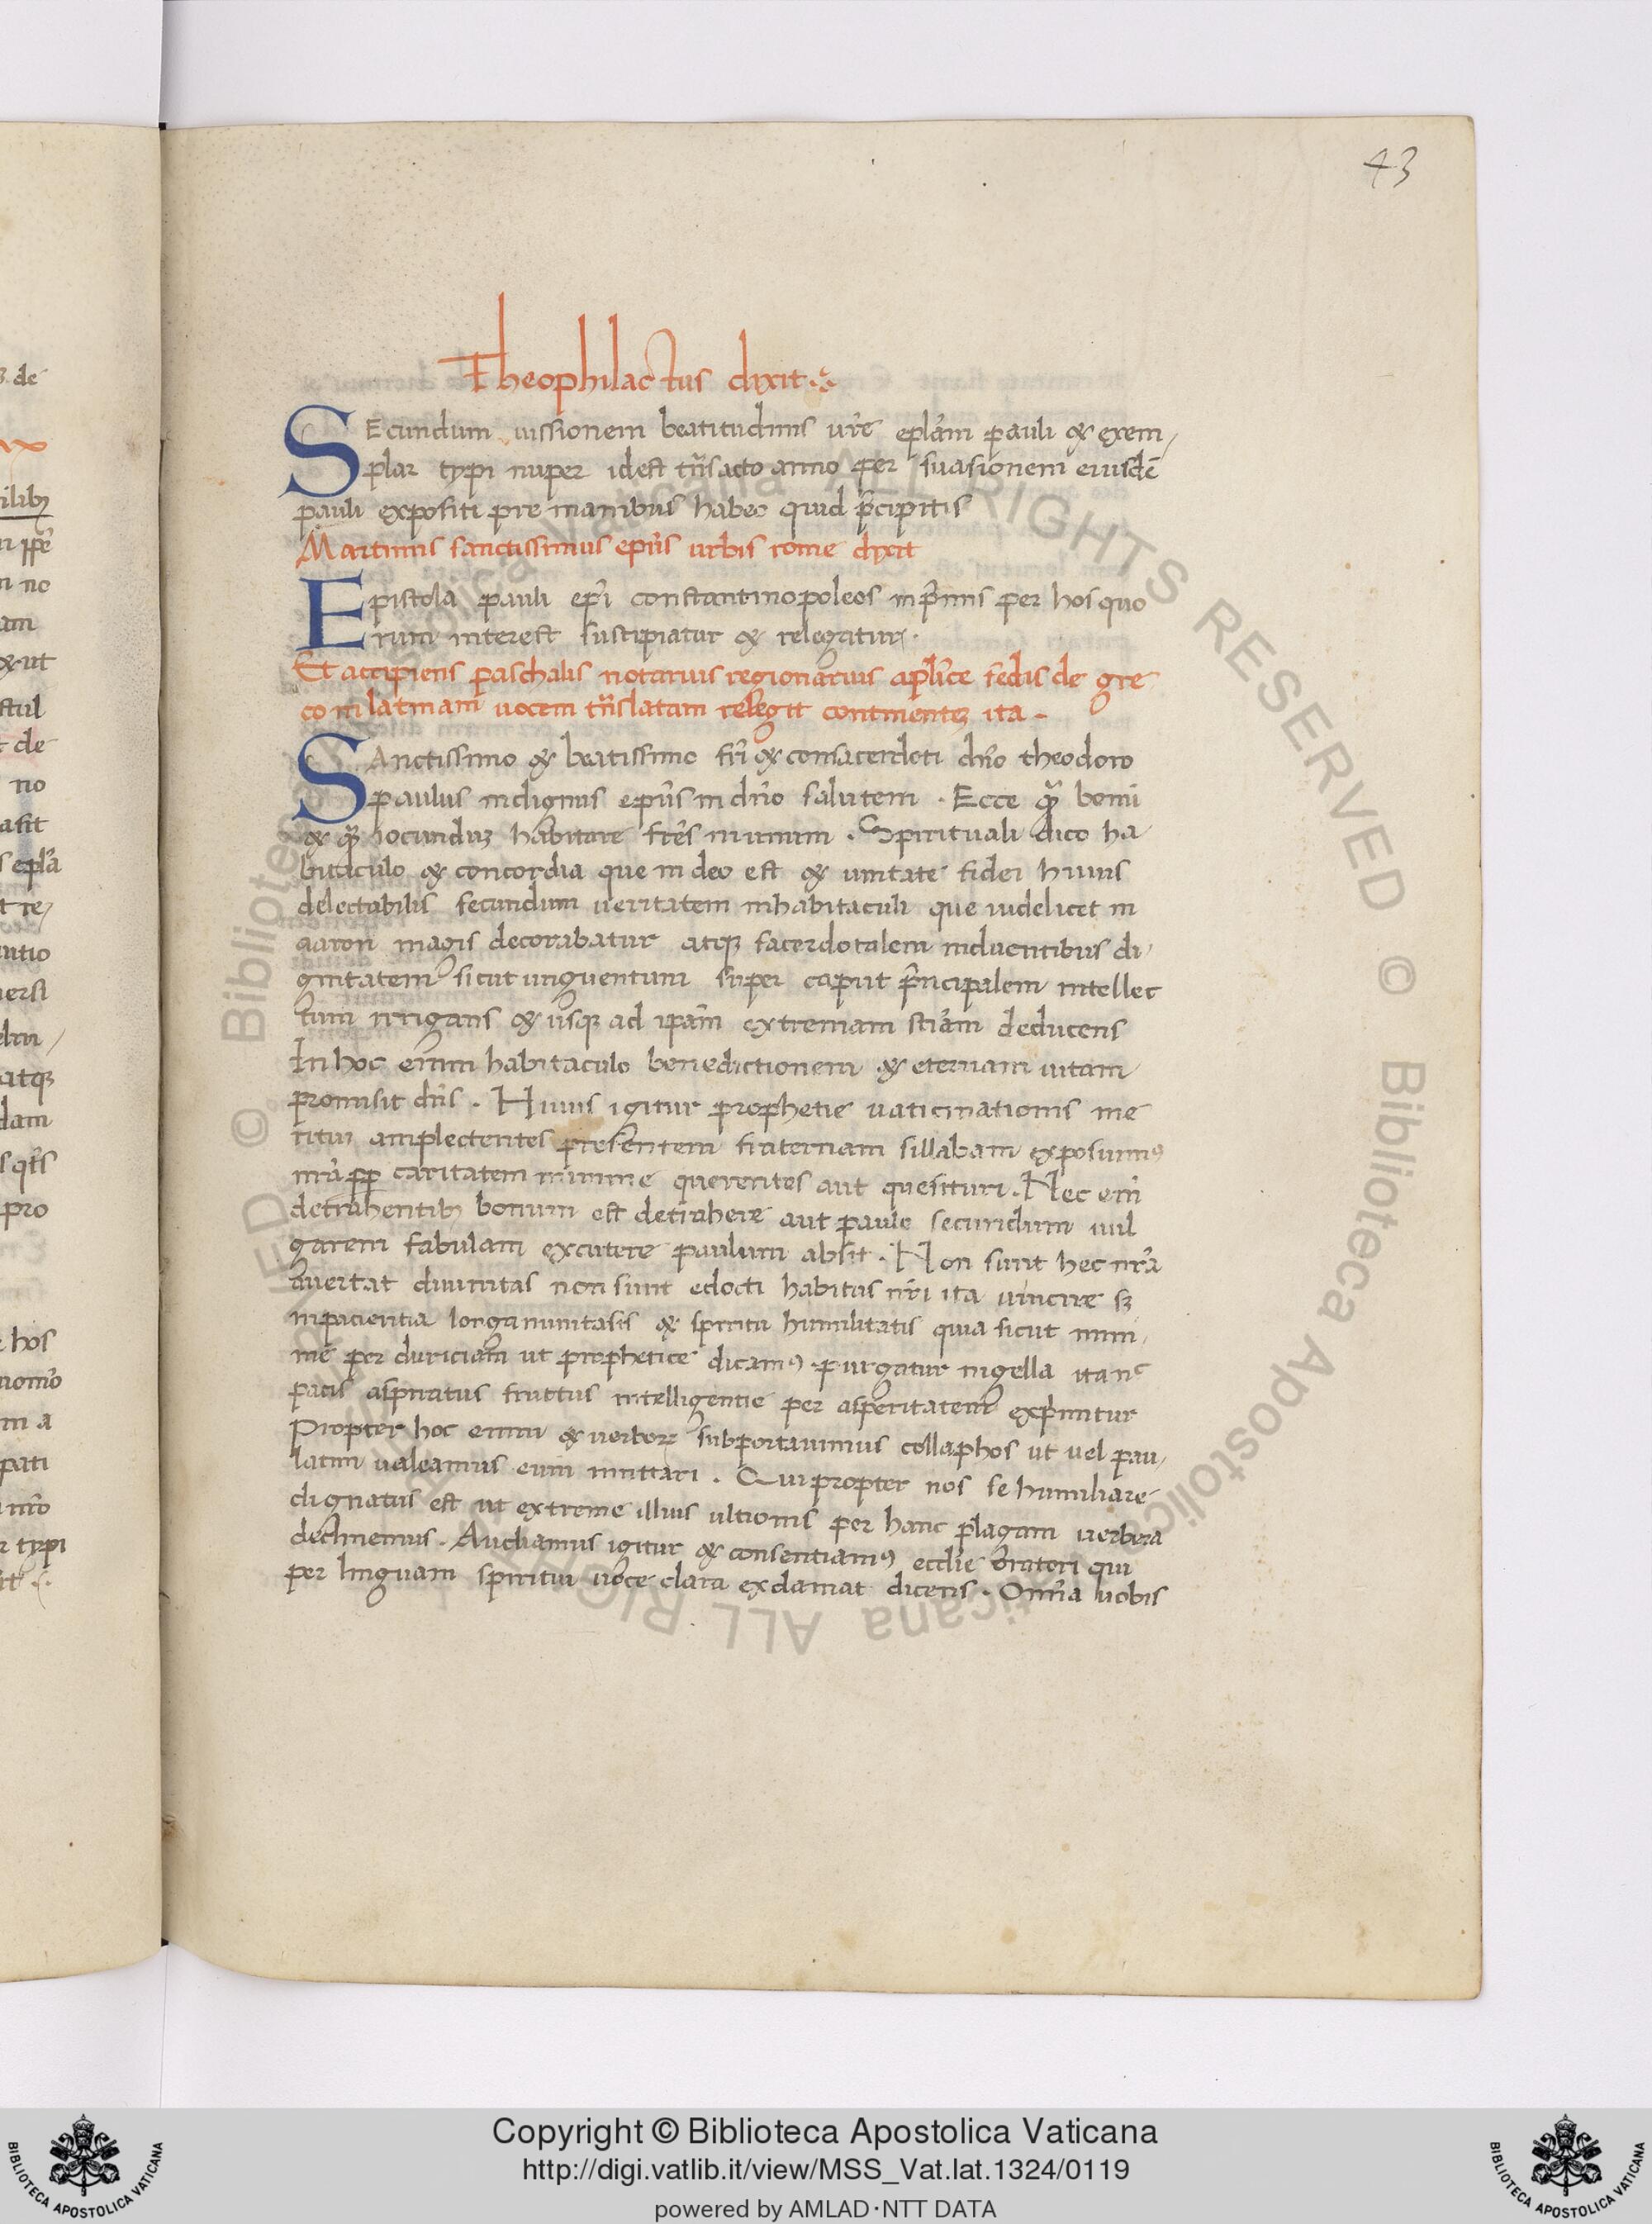 43
Theophilactus dixit
SEcundum iussionem beatitudinis vr̃e ep̃lam pauli & exem
plar typi nuper idest trãsacto anno per suasionem eiusdẽ
pauli expositi pre manibus habeo quid p̃cipitis
Martinus sanctissimus ep̃us urbis rome dixit
Epistola pauli ep̃i constantinopoleos inp̃mis per hos quo
rum interest suscipiatur & relegatur.
Et accipiens paschalis notarius regionarius ap̃lice sedis de gre
co in latinam uocem trãslatam relegit continentẽ ita.
SAnctissimo & beatissimo fr̃i & consacerdoti dño theodoro
paulus indignus ep̃us in dño salutem. Ecce quã bonũ
& quã iocundum habitare fr̃es in unum. Spirituali dico ha
bitaculo & concordia que in deo est & unitate fidei huius
delectabilis secundum ueritatem inhabitaculi que uidelicet in
aaron magis decorabatur atq; sacerdotalem induentibus di
gnitatem sicut unguentum super caput p̃ncipalem intellec
tum irrigans & usq; ad ip̃am extremam sciãm deducens
In hoc enim habitaculo benedictionem & eternam uitam
promisit dñs. Huius igitur prophetie uaticinationis me
ritum amplectentes presentem fraternam sillabam exposuimꝰ
nr̃a ꝓp̃ caritatem minime querentes aut quesituri. Nec eñi
detrahentibꝫ bonum est detrahere aut paulo secundum uul
garem fabulam excutere paulum absit. Non sunt hec nr̃a
auertat diuinitas non sunt edocti habitus nr̃i ita uincire sꝫ
inpacientia longanimitatis & spiritu humilitatis quia sicut mini
me per duriciam ut prophetice dicamꝰ purgatur nigella ita nc̃
pacis aspnatus fructus intelligentie per asperitatem exp̃mitur
Propter hoc enim & verborꝫ subportauimus collaphos ut uel pau
latim ualeamus eum imittari. Qui propter nos se humiliare
dignatus est ut extreme illius ultionis per hanc plagam uerbera
declinemus. Audiamus igitur & consentiamꝰ ecclie oratori qui
per linguam spiritui uoce clara exclamat dicens. Omñia uobis
Copyright © Biblioteca Apostolica Vaticana
http://digi.vatlib.it/view/MSS_Vat.lat.1324/0119
powered by AMLAD·NTT DATA